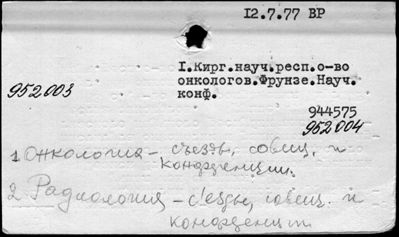 12.7.77 ВР
I.Кирг.науч.респ.о-во
онкологов.Фрунзе.Науч.
конф.
952003
944575
952004
1 Онкология – съезды, совещ. и
конференции.
2 Радиология – съезды, совещ. и
конференции.